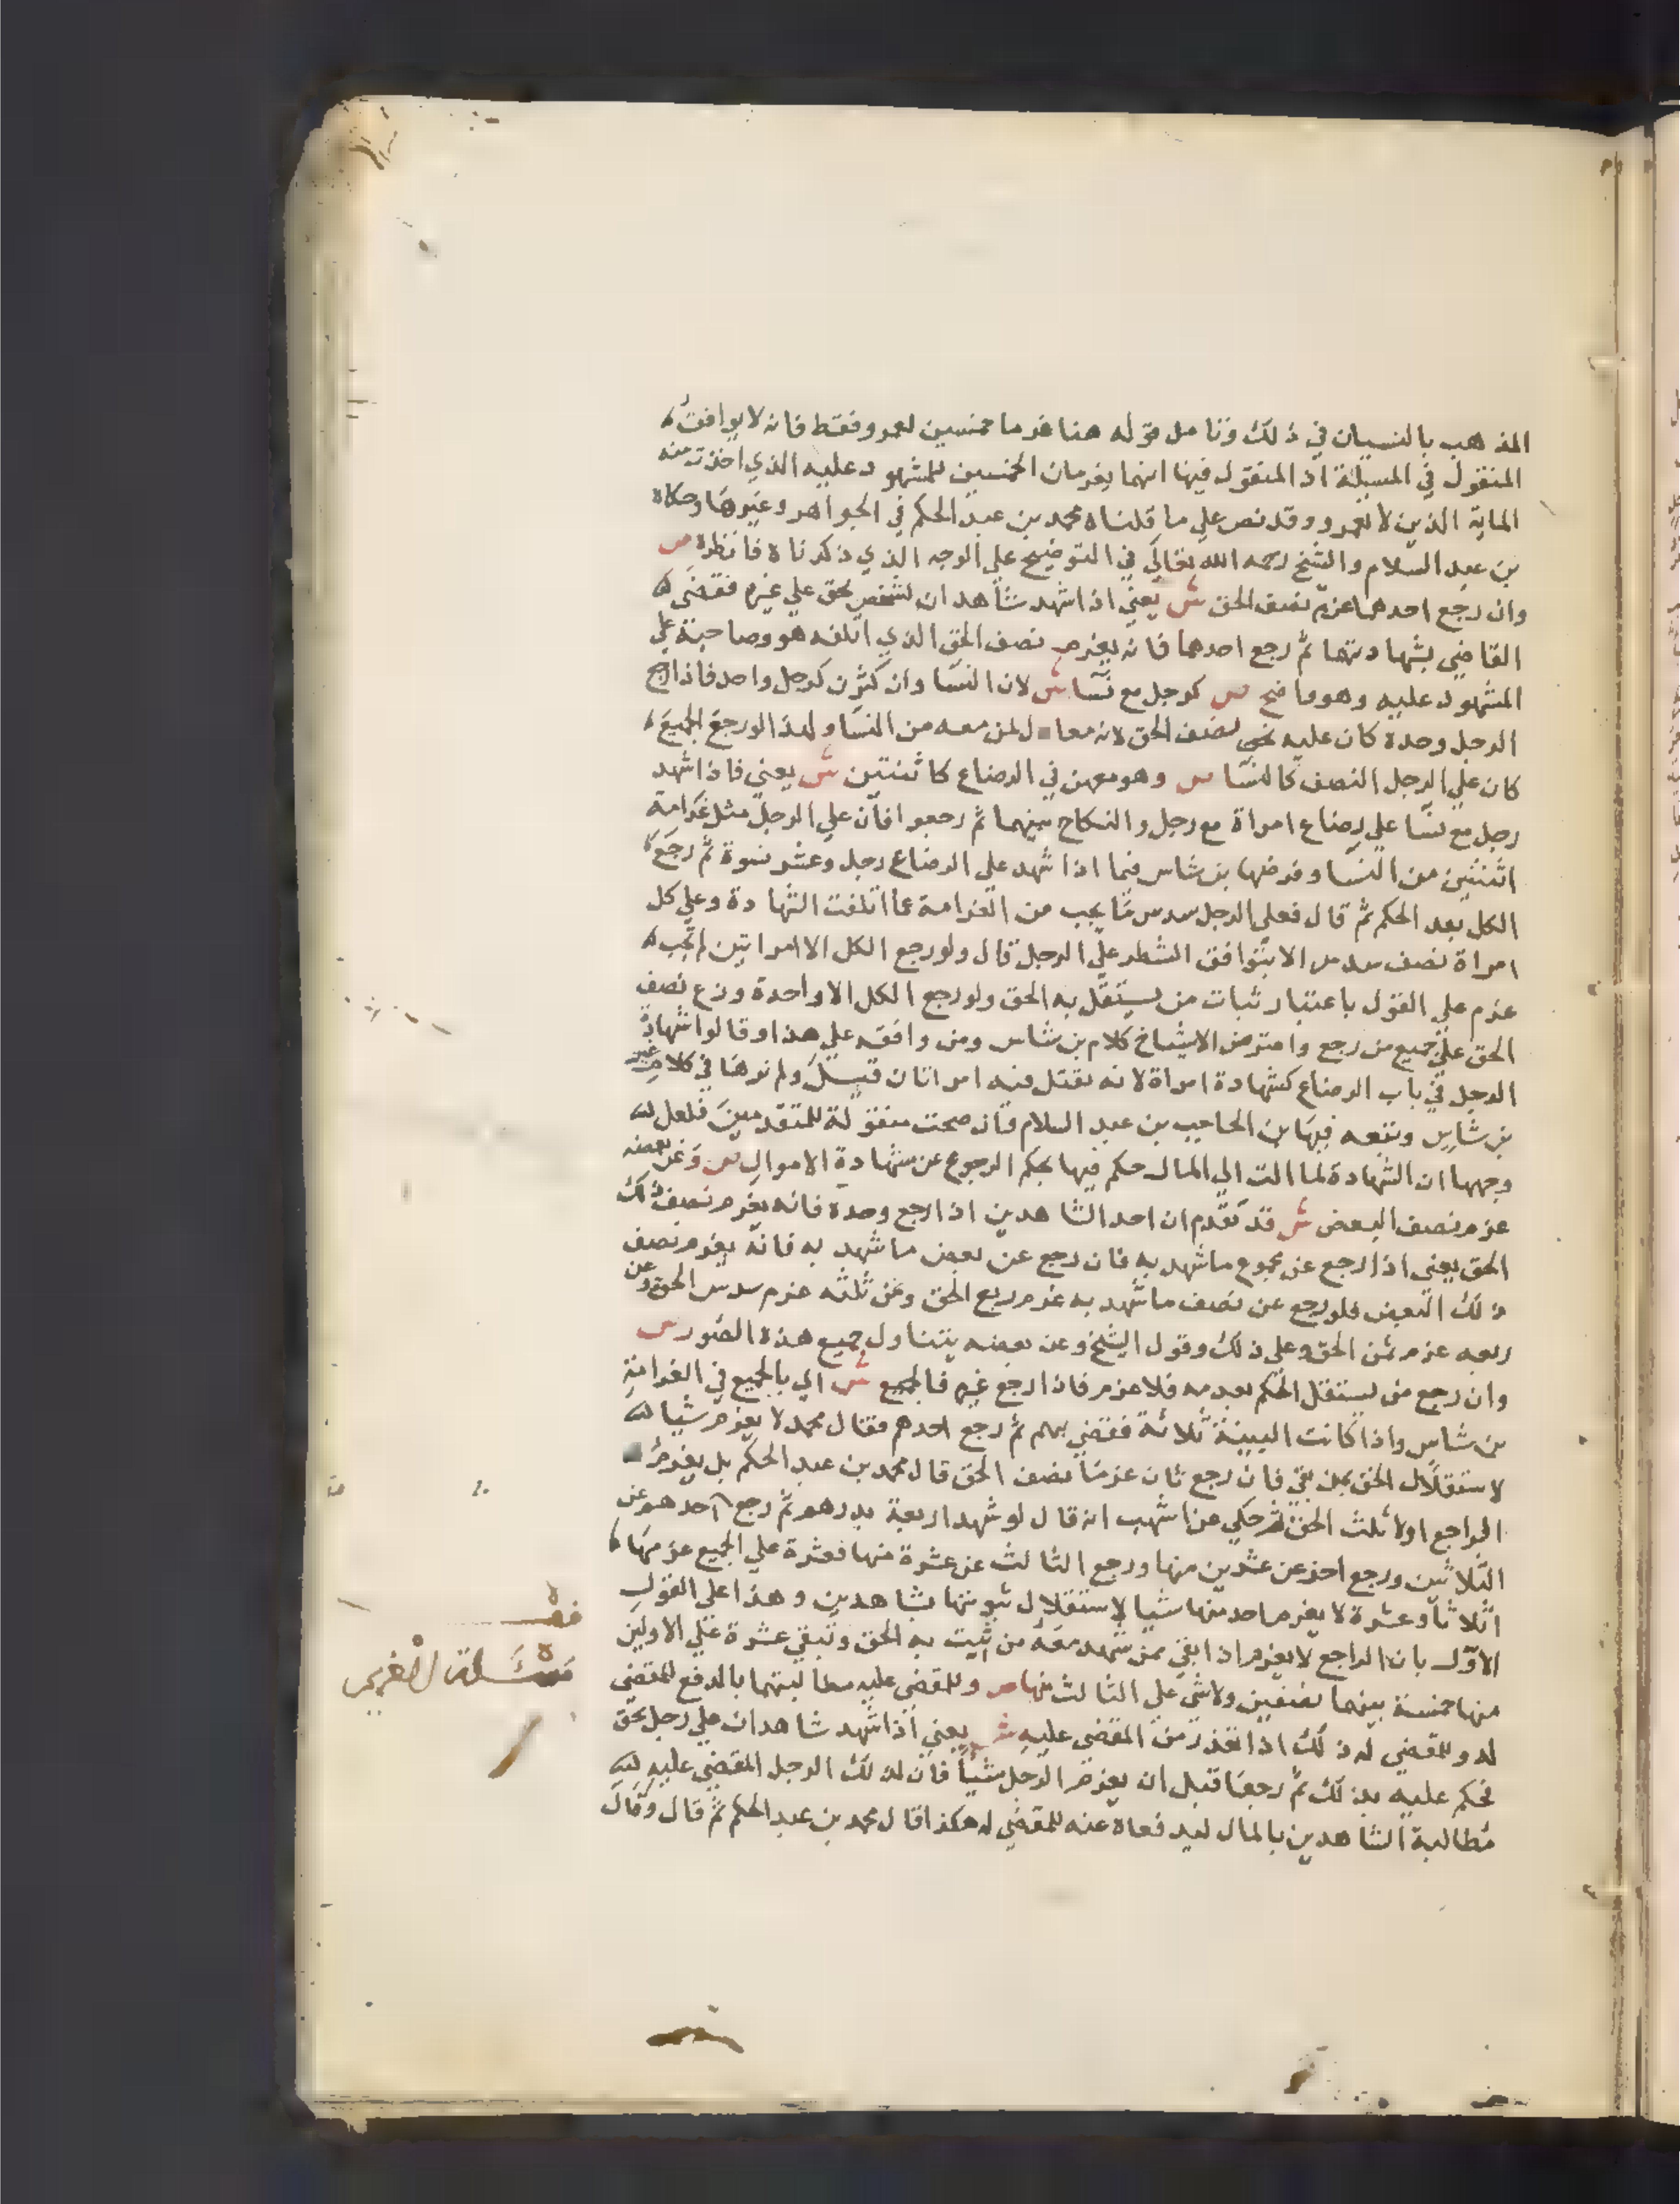 المذهب بالنسيان في ذلك وتامل قوله هنا غرما خمسين لعمرو فقط فانه لا يوافق
المنقول في المسيلة اذ المنقول فيها انهما يغرمان الخمسين للمشهود عليه الذي اخذت منه
الماية الذين لا لعمرو وقد نص علي ما قلناه محمد بن عبد الحكم في الجواهر وغيرها وحكاه
بن عبد السلام والشيخ رحمه الله تعالي في التوضيح علي الوجه الذي ذكرناه فانظره ص
وان رجع احدهما غرم نصف الحق ش يعني اذا شهد شاهدان لشخص بحق علي غيره فقضي له
القاضي بشهادتهما ثم رجع احدهما فانه يغرم نصف الحق الذي اتلفه هو وصاحبه علي
المشهود عليه وهو واضح ص كرجل مع نسا ش لان النسا وان كثرن كرجل واحد فاذا رجع
الرجل وحده كان عليه نصف الحق لانه معادل لمن معه من النسا ولهذا لو رجع الجميع
كان علي الرجل النصف كالنسا ص وهو معهن في الرضاع كاثنتين ش يعني فاذا شهد
رجل مع نسا علي رضاع امراة مع رجل والنكاح بينهما ثم رجعوا فان علي الرجل مثل غرامة
اثنتين من النسا وفرضها بن شاس فيما اذا شهد علي الرضاع رجل وعشر نسوة ثم رجع
الكل بعد الحكم ثم قال فعلي الرجل سدس ما يجب من الغرامة عما اتلفت الشهادة وعلي كل
امراة نصف سدس الا بتوافق الشطر علي الرجل قال ولو رجع الكل الا امراتين لم تجب
غرم علي القول باعتبار ثبات من يستقل به الحق ولو رجع الكل الا واحدة وزع نصف
الحق علي جميع من رجع واعترض الاشياخ كلام بن شاس ومن وافقه علي هذا وقالوا شهادة
الرجل في باب الرضاع كشهادة امراة لانه يقتل فيه امراتان قيل ولم نرها في كلام غير
بن شاس وتبعه فيها بن الحاجب بن عبد السلام فان صحت منقولة للمتقدمين فلعل
وجهها ان الشهادة لما الت الي المال حكم فيها بحكم الرجوع عن شهادة الاموال ص وعن بعضه
غرم نصف البعض ش قد تقدم ان احد الشاهدين اذا رجع وحده فانه يغرم نصف ذلك
الحق يعني اذا رجع عن مجموع ما شهد به فان رجع عن بعض ما شهد به فانه يغرم نصف
ذلك البعض فلو رجع عن نصف ما شهد به غرم ربع الحق وعن ثلثه غرم سدس الحق وعن
ربعه غرم ثمن الحق وعلي ذلك وقول الشيخ وعن بعضه يتناول جميع هذه الصور ص
وان رجع من يستقل الحكم بعدمه فلا غرم فاذا رجع غيره فالجميع ش اي بالجميع في الغرامة
بن شاس واذا كانت البينة ثلاثة فقضي بهم ثم رجع احدهم فقال محمد لا يغرم شيا
لاستقلال الحق بمن بقي فان رجع ثان غرما نصف الحق قال محمد بن عبد الحكم بل يغرم
الراجع اولا ثلث الحق ثم حكي عن اشهب انه قال لو شهد اربعة بدرهم ثم رجع احدهم عن
الثلاثين ورجع اخر عن عشرين منها ورجع الثالث عن عشرة منها فعشرة علي الجميع غرمها
اثلاثا وعشرة لا يغرم احد منها شيا لاستقلال ثبوتها بشاهدين وهذا علي القول
الاول بان الراجع لا يغرم اذا بقي ممن شهد معه من اثبت به الحق وتبقي عشرة علي الاولين
منها خمسة بينهما نصفين ولا شي علي الثالث منها ص وللمقضي عليه مطالبتهما بالدفع للمقضي
له وللمقضي له ذلك اذا تعذر من المقضي عليه ش يعني اذا شهد شاهدان علي رجل بحق
فحكم عليه بذلك ثم رجعا قبل ان يغرم الرجل شيا فان لذلك الرجل المقضي عليه
مطالبة الشاهدين بالمال ليدفعاه عنه للمقضي له هكذا قال محمد بن عبد الحكم ثم قال وقال
قف
مسئلة الغريم